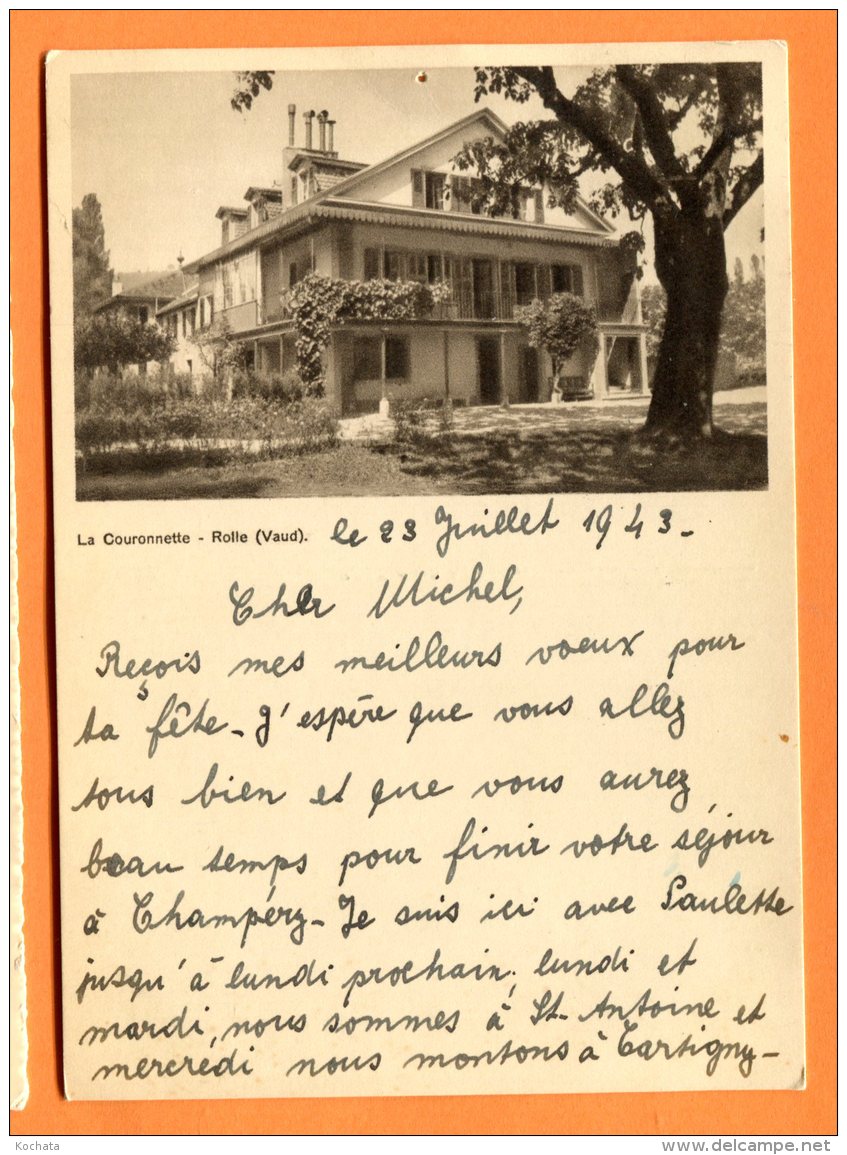 La Couronnette - Rolle (Vaud). le 23 Juillet 1943-
Cher Michel,
Reçois mes meilleurs voeux pour
ta fête- J'espère que vous allez
tous bien et que vous aurez
beau temps pour finir votre séjour
à Champéry- Je suis ici avec Paulette
jusqu'à lundi prochain; lundi et
mardi, nous sommes à St-Antoine et
mercredi nous montons à Tartigny-
Kochata
www.delcampe.net